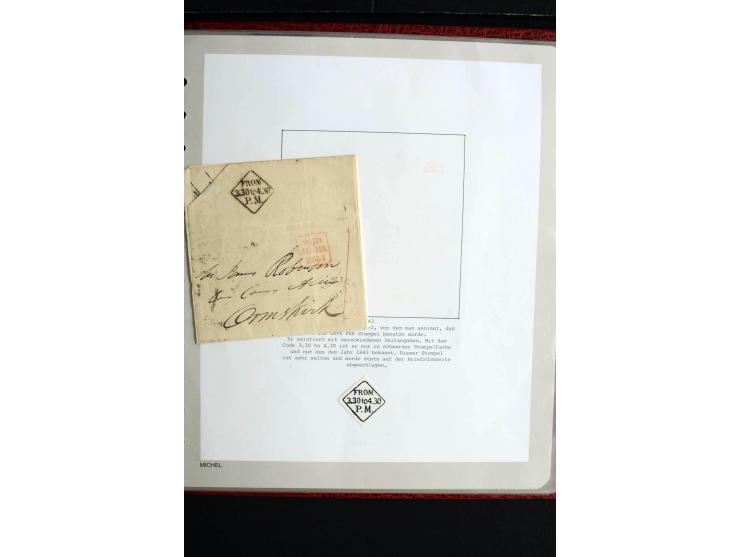 FROM
3.30to4.30
P.M.
PAID
1843
James Robinson
Ormskirk
43
l, von dem man annimmt, daß
LATE FEE Stempel benutzt wurde.
Er existiert mit verschiedenen Zeitangaben. Mit dem
Code 3.30 to 4.30 ist er nur in schwarzer Stempelfarbe
und nur aus dem Jahr 1843 bekannt. Dieser Stempel
ist sehr selten und wurde stets auf der Briefrückseite
abgeschlagen.
FROM
3.30to4.30
P.M.
MICHEL